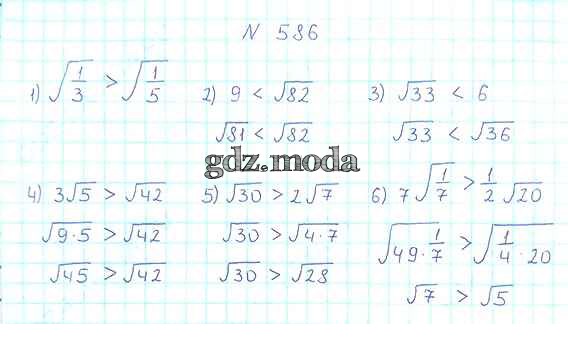 N 586
1) √(1/3) > √(1/5)
2) 9 < √82
√81 < √82
3) √33 < 6
√33 < √36
gdz.moda
4) 3√5 > √42
√(9·5) > √42
√45 > √42
5) √30 > 2√7
√30 > √(4·7)
√30 > √28
6) 7√(1/7) > 1/2 √20
√(49·1/7) > √(1/4·20)
√7 > √5